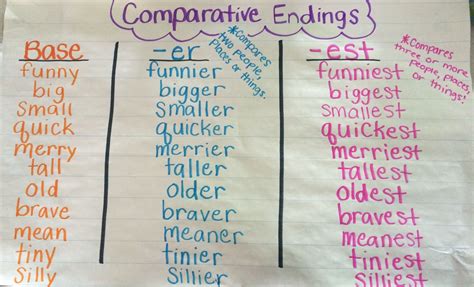 Comparative Endings
Base -er -est
*Compares
two people,
places or things.
*Compares
three or more
people, places,
or things!
funny funnier funniest
big bigger biggest
small smaller smallest
quick quicker quickest
merry merrier merriest
tall taller tallest
old older oldest
brave braver bravest
mean meaner meanest
tiny tinier tiniest
silly sillier silliest